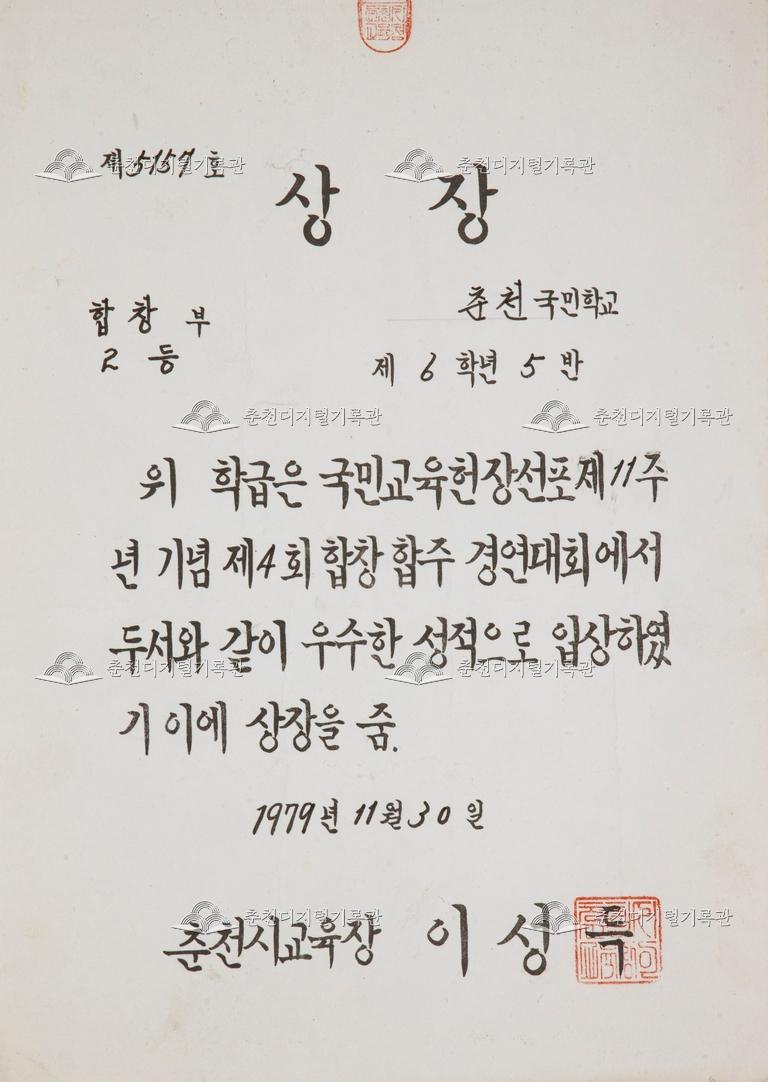 제5157호
상장
합창부
2등
춘천국민학교
제 6 학년 5 반
위 학급은 국민교육헌장선포제11주
년 기념 제4회 합창 합주 경연대회에서
두서와 같이 우수한 성적으로 입상하였
기 이에 상장을 줌.
1979년 11월 30일
춘천시교육장 이성득
춘천디지털기록관
춘천디지털기록관
춘천디지털기록관
춘천디지털기록관
춘천디지털기록관
춘천디지털기록관
춘천디지털기록관
춘천디지털기록관